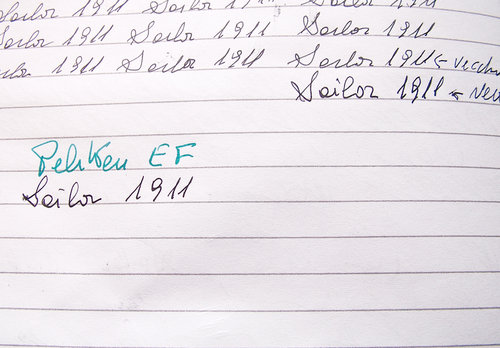 Sailor 1911 Sailor 1911 Sailor 1911
Sailor 1911 Sailor 1911 Sailor 1911
Sailor 1911 Sailor 1911 Sailor 1911 ←
Sailor 1911 ←
Pelikan EF
Sailor 1911